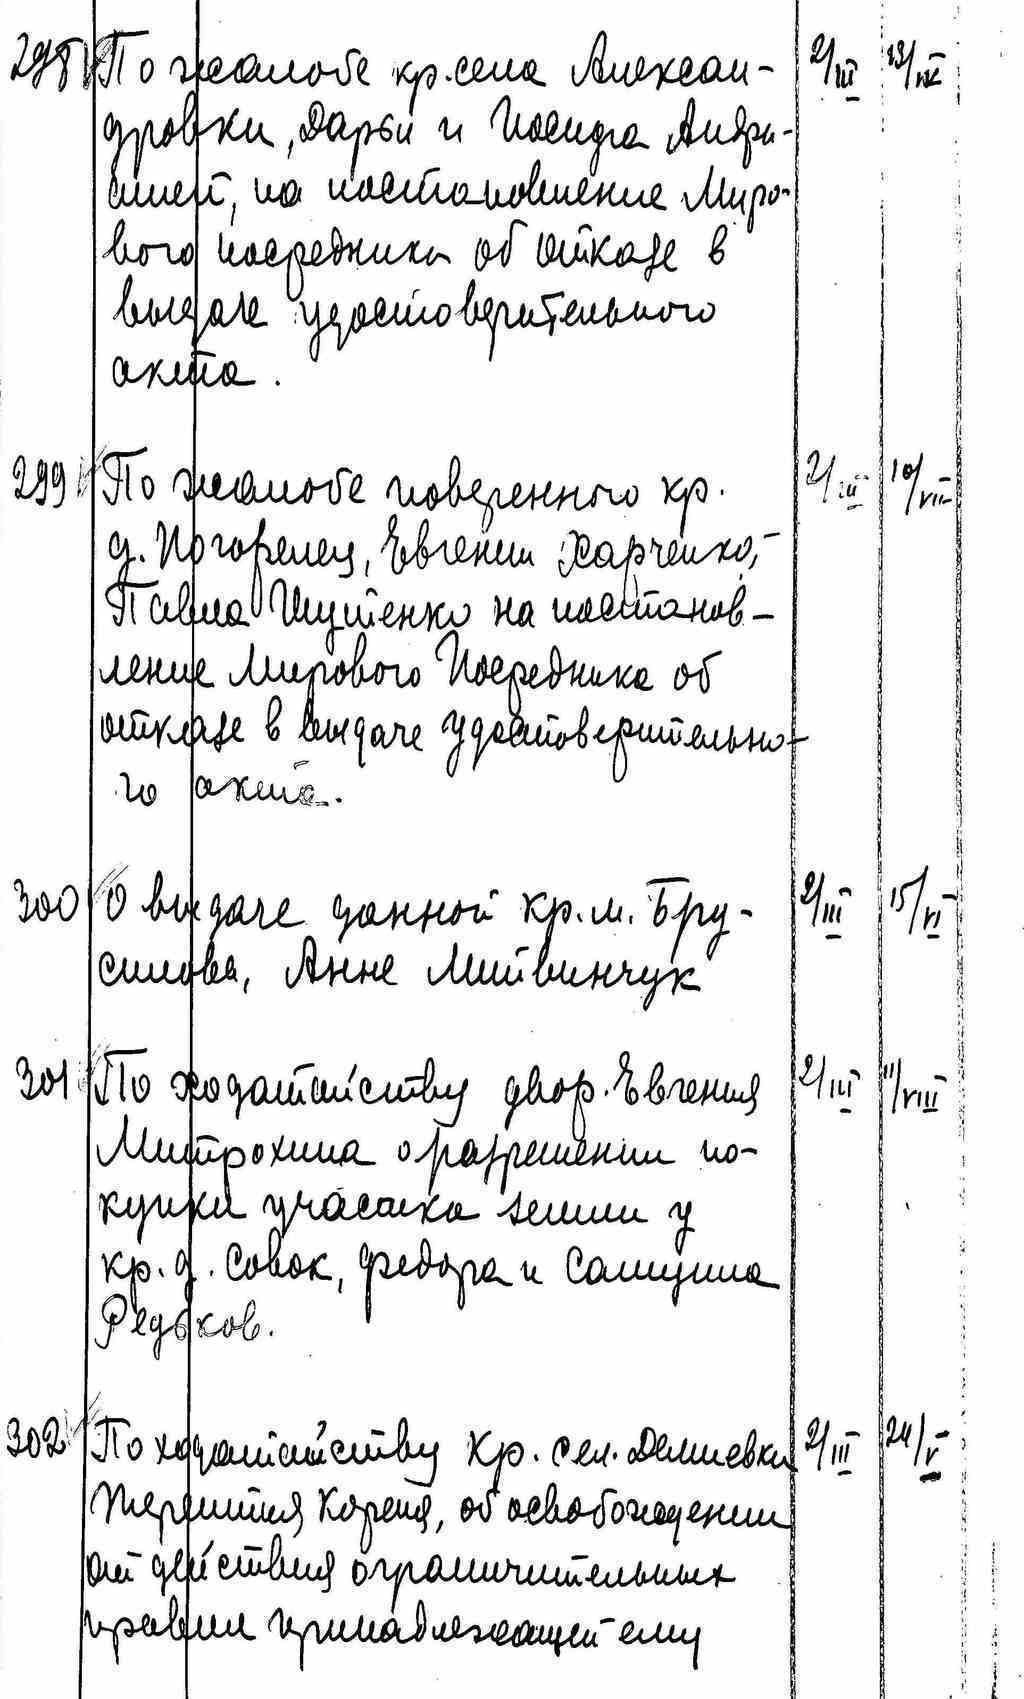 298 По жалобе кр. села Алексан- 2/III 23/IX
дровки, Дарьи и Иосифа
на постановление Миро-
вого посредника об отказе в
выдаче удостоверительного
акта.
299 По жалобе поверенного кр. 2/III 10/VII
д. Погорелец, Евгении Харченко,-
Павла Шутенко на постанов-
ление Мирового Посредника об
отказе в выдаче удостоверительно-
го акта.
300 О выдаче данной кр. м. Бру- 2/III 15/VI
силова, Анне Литвинчук
301 По ходатайству двор. Евгения 2/III 11/VIII
Митрохина о разрешении по-
купки участка земли у
кр. д. Совок, Федора и Самуила
Редьков.
302 По ходатайству кр. сел. Демиевки 2/III 24/V
Терентия Кореня, об освобождении
от действия ограничительных
правил принадлежащей ему